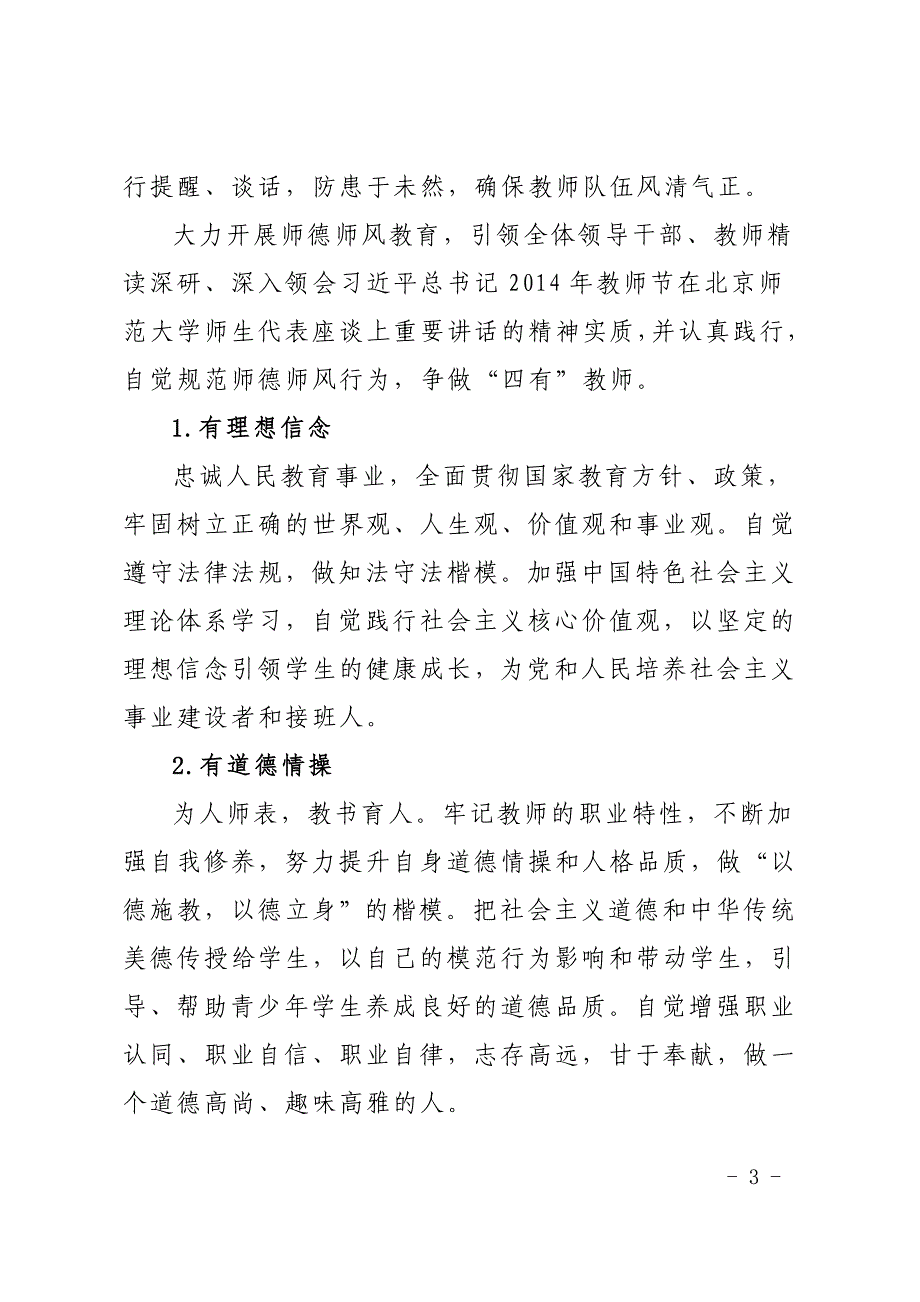 行提醒、谈话，防患于未然，确保教师队伍风清气正。
大力开展师德师风教育，引领全体领导干部、教师精
读深研、深入领会习近平总书记2014年教师节在北京师
范大学师生代表座谈上重要讲话的精神实质，并认真践行，
自觉规范师德师风行为，争做“四有”教师。
1.有理想信念
忠诚人民教育事业，全面贯彻国家教育方针、政策，
牢固树立正确的世界观、人生观、价值观和事业观。自觉
遵守法律法规，做知法守法楷模。加强中国特色社会主义
理论体系学习，自觉践行社会主义核心价值观，以坚定的
理想信念引领学生的健康成长，为党和人民培养社会主义
事业建设者和接班人。
2.有道德情操
为人师表，教书育人。牢记教师的职业特性，不断加
强自我修养，努力提升自身道德情操和人格品质，做“以
德施教，以德立身”的楷模。把社会主义道德和中华传统
美德传授给学生，以自己的模范行为影响和带动学生，引
导、帮助青少年学生养成良好的道德品质。自觉增强职业
认同、职业自信、职业自律，志存高远，甘于奉献，做一
个道德高尚、趣味高雅的人。
- 3 -